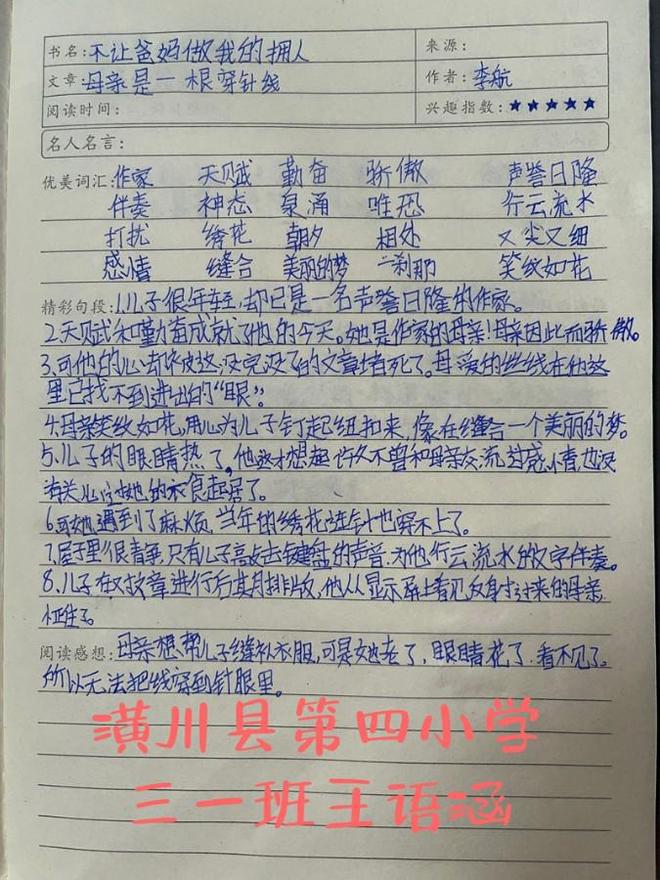 书名:不让爸妈做我的拥人 来源:
文章:母亲是一根穿针线 作者:李航
阅读时间: 兴趣指数:★★★★★
名人名言:
优美词汇:作家 天赋 勤奋 骄傲 声誉日隆
伴奏 神态 泉涌 唯恐 行云流水
打扰 绣花 朝夕 相处 又尖又细
感情 缝合 美丽的梦 一刹那 笑纹如花
精彩句段:1.儿子很年轻,却已是一名声誉日隆的作家。
2.天赋和勤奋成就了他的今天。她是作家的母亲!母亲因此而骄傲。
3.可他的心去你皮这没完没了的文章堵死了。母爱的丝线在他这
里已找不到进出的“眼”。
4.母亲笑纹如花,用心为儿子钉起纽扣来,像在缝合一个美丽的梦。
5.儿子的眼睛热了,他这才想起许久不曾和母亲交流过感情,也没
有关心过她的衣食起居了。
6.可她遇到了麻烦,当年的绣花这针也穿不上了。
7.屋子里很青争,只有儿子高攵击键盘的声音,为他行云流水的文字伴奏。
8.儿子在对文章进行后期排版,他从显示屏上看见反身寸过来的母亲
怔住了。
阅读感想:母亲想帮儿子缝补衣服,可是她老了,眼睛花了,看不见了。
所以无法把线穿到针眼里。
潢川县第四小学
三一班王语涵